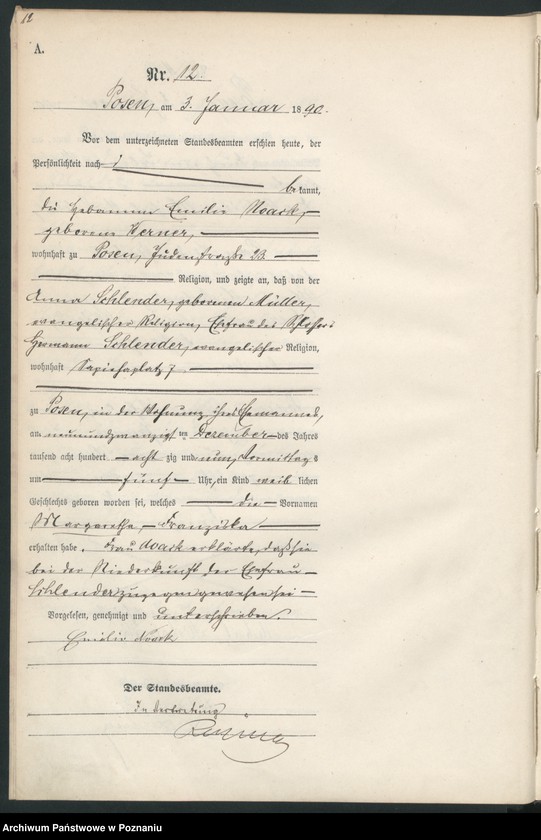 12
A.
Nr. 12.
Posen, am 3. Januar 1890.
Vor dem unterzeichneten Standesbeamten erschien heute, der
Persönlichkeit nach
bekannt,
die Hebamme Emilie Noack,
geborene Werner,
wohnhaft zu Posen, Judenstraße 23
Religion, und zeigte an, daß von der
Anna Schlender, geborenen Müller,
evangelischer Religion, Ehefrau des Schlossers
Hermann Schlender, evangelischer Religion,
wohnhaft Sapiehaplatz 7
zu Posen, in der Wohnung ihres Ehemannes,
am neunundzwanzigsten Dezember des Jahres
tausend acht hundert achtzig und neun, Vormittags
um fünf Uhr, ein Kind weiblichen
Geschlechts geboren worden sei, welches die Vornamen
Margarethe Franziska
erhalten habe. Frau Noack erklärte, daß sie
bei der Niederkunft der Ehefrau
Schlender zugegen gewesen sei
Vorgelesen, genehmigt und unterschrieben.
Emilie Noack
Der Standesbeamte.
In Vertretung
Archiwum Państwowe w Poznaniu